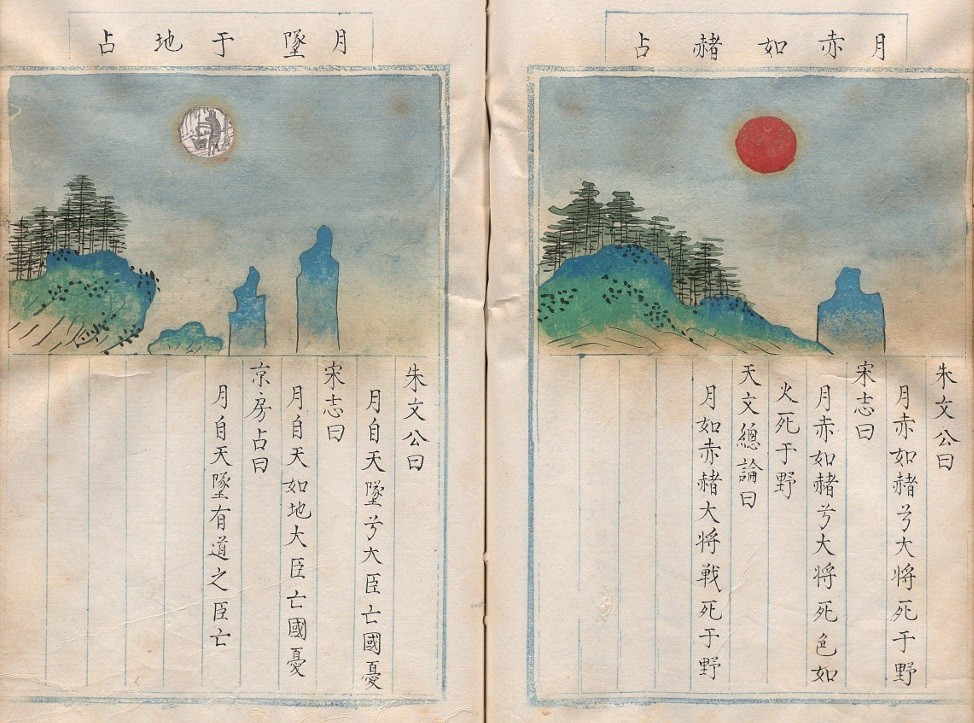 月赤如赭占
朱文公曰
月赤如赭兮大将死于野
宋志曰
月赤如赭兮大将死色如
火死于野
天文總論曰
月如赤赭大将戦死于野
月墜于地占
朱文公曰
月自天墜兮大臣亡國憂
宋志曰
月自天如地大臣亡國憂
京房占曰
月自天墜有道之臣亡